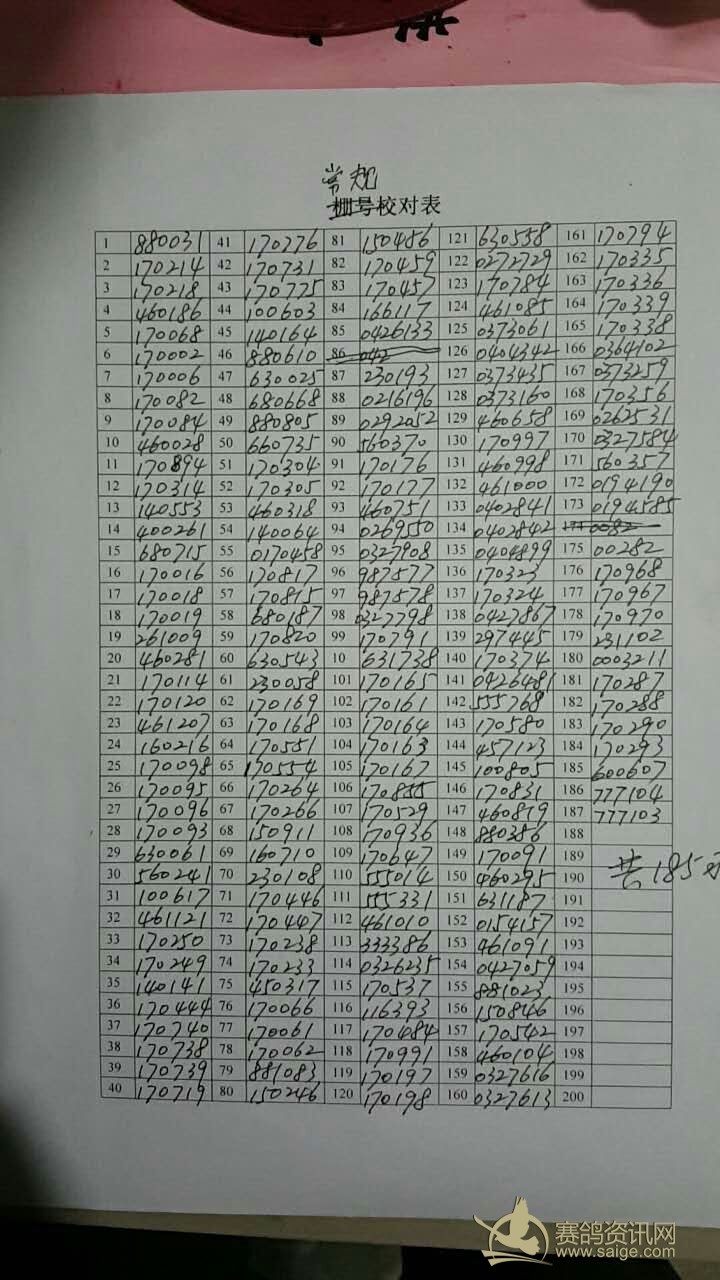 常规
栅号校对表
1 880031 41 170276 81 150486 121 630558 161 170794
2 170214 42 170731 82 170459 122 0272729 162 170335
3 170218 43 170775 83 170457 123 170784 163 170336
4 460186 44 100603 84 166117 124 461085 164 170339
5 170068 45 140164 85 0426133 125 0373061 165 170338
6 170002 46 880610 86 042 126 0404342 166 0364102
7 170006 47 630025 87 230193 127 0373435 167 0373259
8 170082 48 680668 88 0216196 128 0373160 168 170356
9 170084 49 880805 89 0292052 129 460658 169 0262531
10 460028 50 660735 90 560370 130 170997 170 0327584
11 170894 51 170304 91 170176 131 460998 171 560357
12 170314 52 170305 92 170177 132 461000 172 0194190
13 140553 53 460318 93 460751 133 0402841 173 0194585
14 400261 54 140064 94 0269550 134 0402842 174 0082
15 680715 55 0170458 95 0327908 135 0404899 175 00282
16 170016 56 170817 96 987577 136 170323 176 170968
17 170018 57 170815 97 987578 137 170324 177 170967
18 170019 58 680187 98 0327798 138 0427867 178 170970
19 261009 59 170820 99 170791 139 297445 179 231102
20 460281 60 630543 10 631738 140 170374 180 0003211
21 170114 61 230058 101 170165 141 0426481 181 170287
22 170120 62 170169 102 170161 142 555768 182 170288
23 461207 63 170168 103 170164 143 170580 183 170290
24 160216 64 170551 104 170163 144 457123 184 170293
25 170098 65 170554 105 170167 145 100805 185 600607
26 170095 66 170264 106 170855 146 170831 186 777104
27 170096 67 170266 107 170529 147 460819 187 777103
28 170093 68 150911 108 170936 148 880386 188
29 630061 69 160710 109 170647 149 170091 189
30 560241 70 230108 110 555014 150 460295 190 共185羽
31 100617 71 170446 111 555331 151 631187 191
32 461121 72 170447 112 461010 152 0154157 192
33 170250 73 170238 113 333386 153 461091 193
34 170249 74 170233 114 0326235 154 0427059 194
35 140141 75 450317 115 170537 155 881023 195
36 170444 76 170066 116 116393 156 150846 196
37 170740 77 170061 117 170684 157 170542 197
38 170738 78 170062 118 170991 158 460104 198
39 170739 79 881083 119 170197 159 0327616 199
40 170719 80 150246 120 170198 160 0327613 200
赛鸽资讯网
www.saige.com